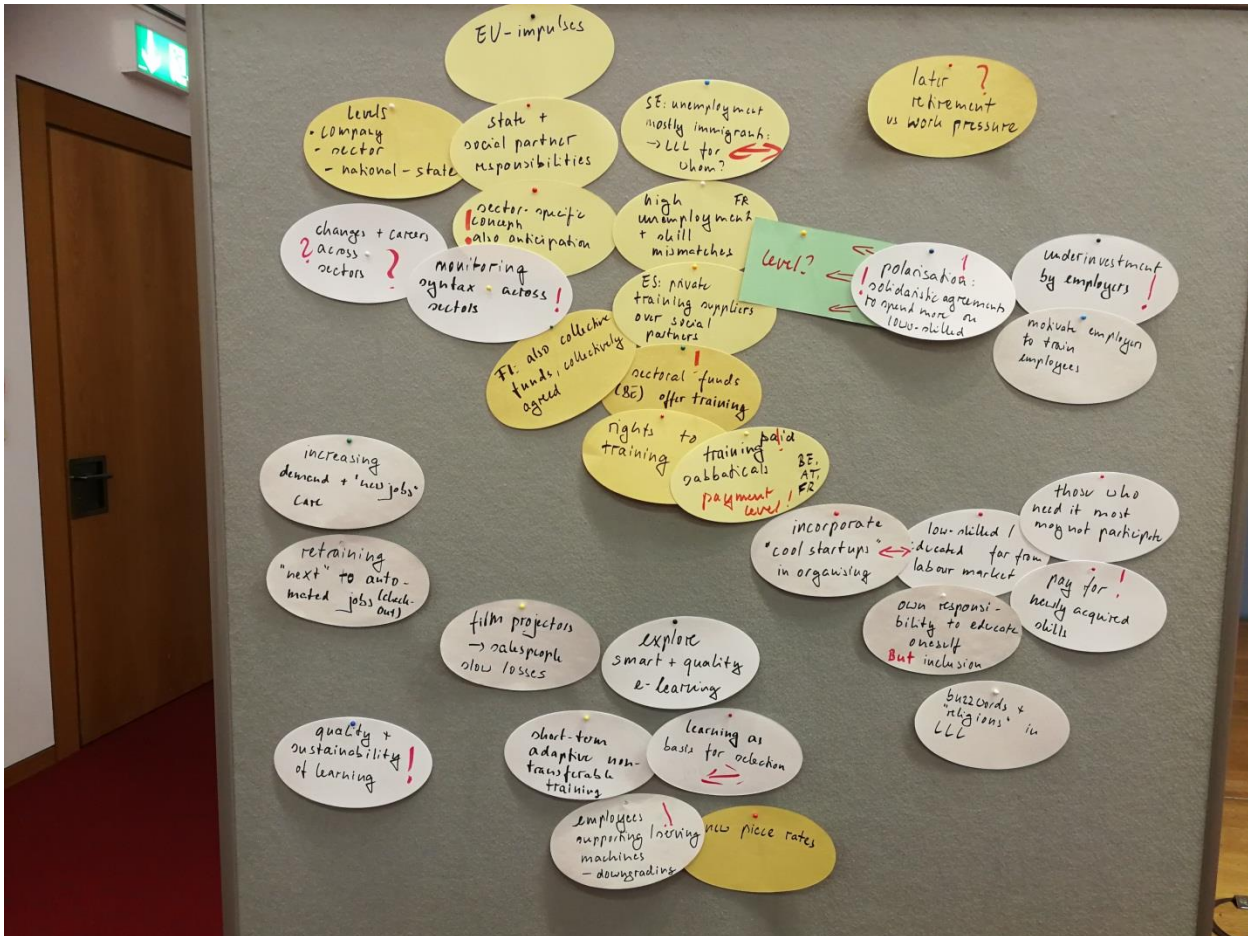 EU-impulses
later ?
retirement
vs work pressure
levels
• company
- sector
- national-state
state +
social partner
responsibilities
SE: unemployment
mostly immigrant:
→ LLL for
whom?
? changes + careers
across
sectors ?
! sector-specific
concept
! also anticipation
high FR
unemployment
+ skill
mismatches
level?
polarisation: !
! solidaristic agreements
to spend more on
low-skilled
underinvestment
by employers !
motivate employers
to train
employees
monitoring
syntax across
sectors !
ES: private
training suppliers
over social
partners
FI: also collective
funds, collectively
agreed
sectoral funds !
(BE) offer training
rights to
training
paid !
training
sabbaticals BE,
AT,
FR
payment
level!
increasing
demand + "new jobs"
care
retraining
"next" to auto-
mated jobs (check-
out)
incorporate
"cool startups"
in organising
low-skilled /
educated far from
labour market
those who
need it most
may not participate
pay for !
newly acquired
skills
own responsi-
bility to educate
oneself
But inclusion
film projectors
→ salespeople
slow losses
explore
smart + quality
e-learning
buzzwords +
"religions" in
LLL
quality +
sustainability
of learning !
short-term
adaptive non-
transferable
training
learning as
basis for selection
employees !
supporting / serving
machines
- downgrading
new piece rates